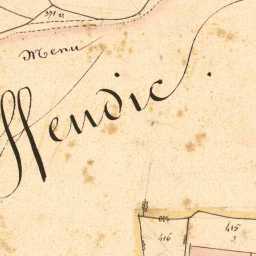 391
Menu
ffendic.
416
415